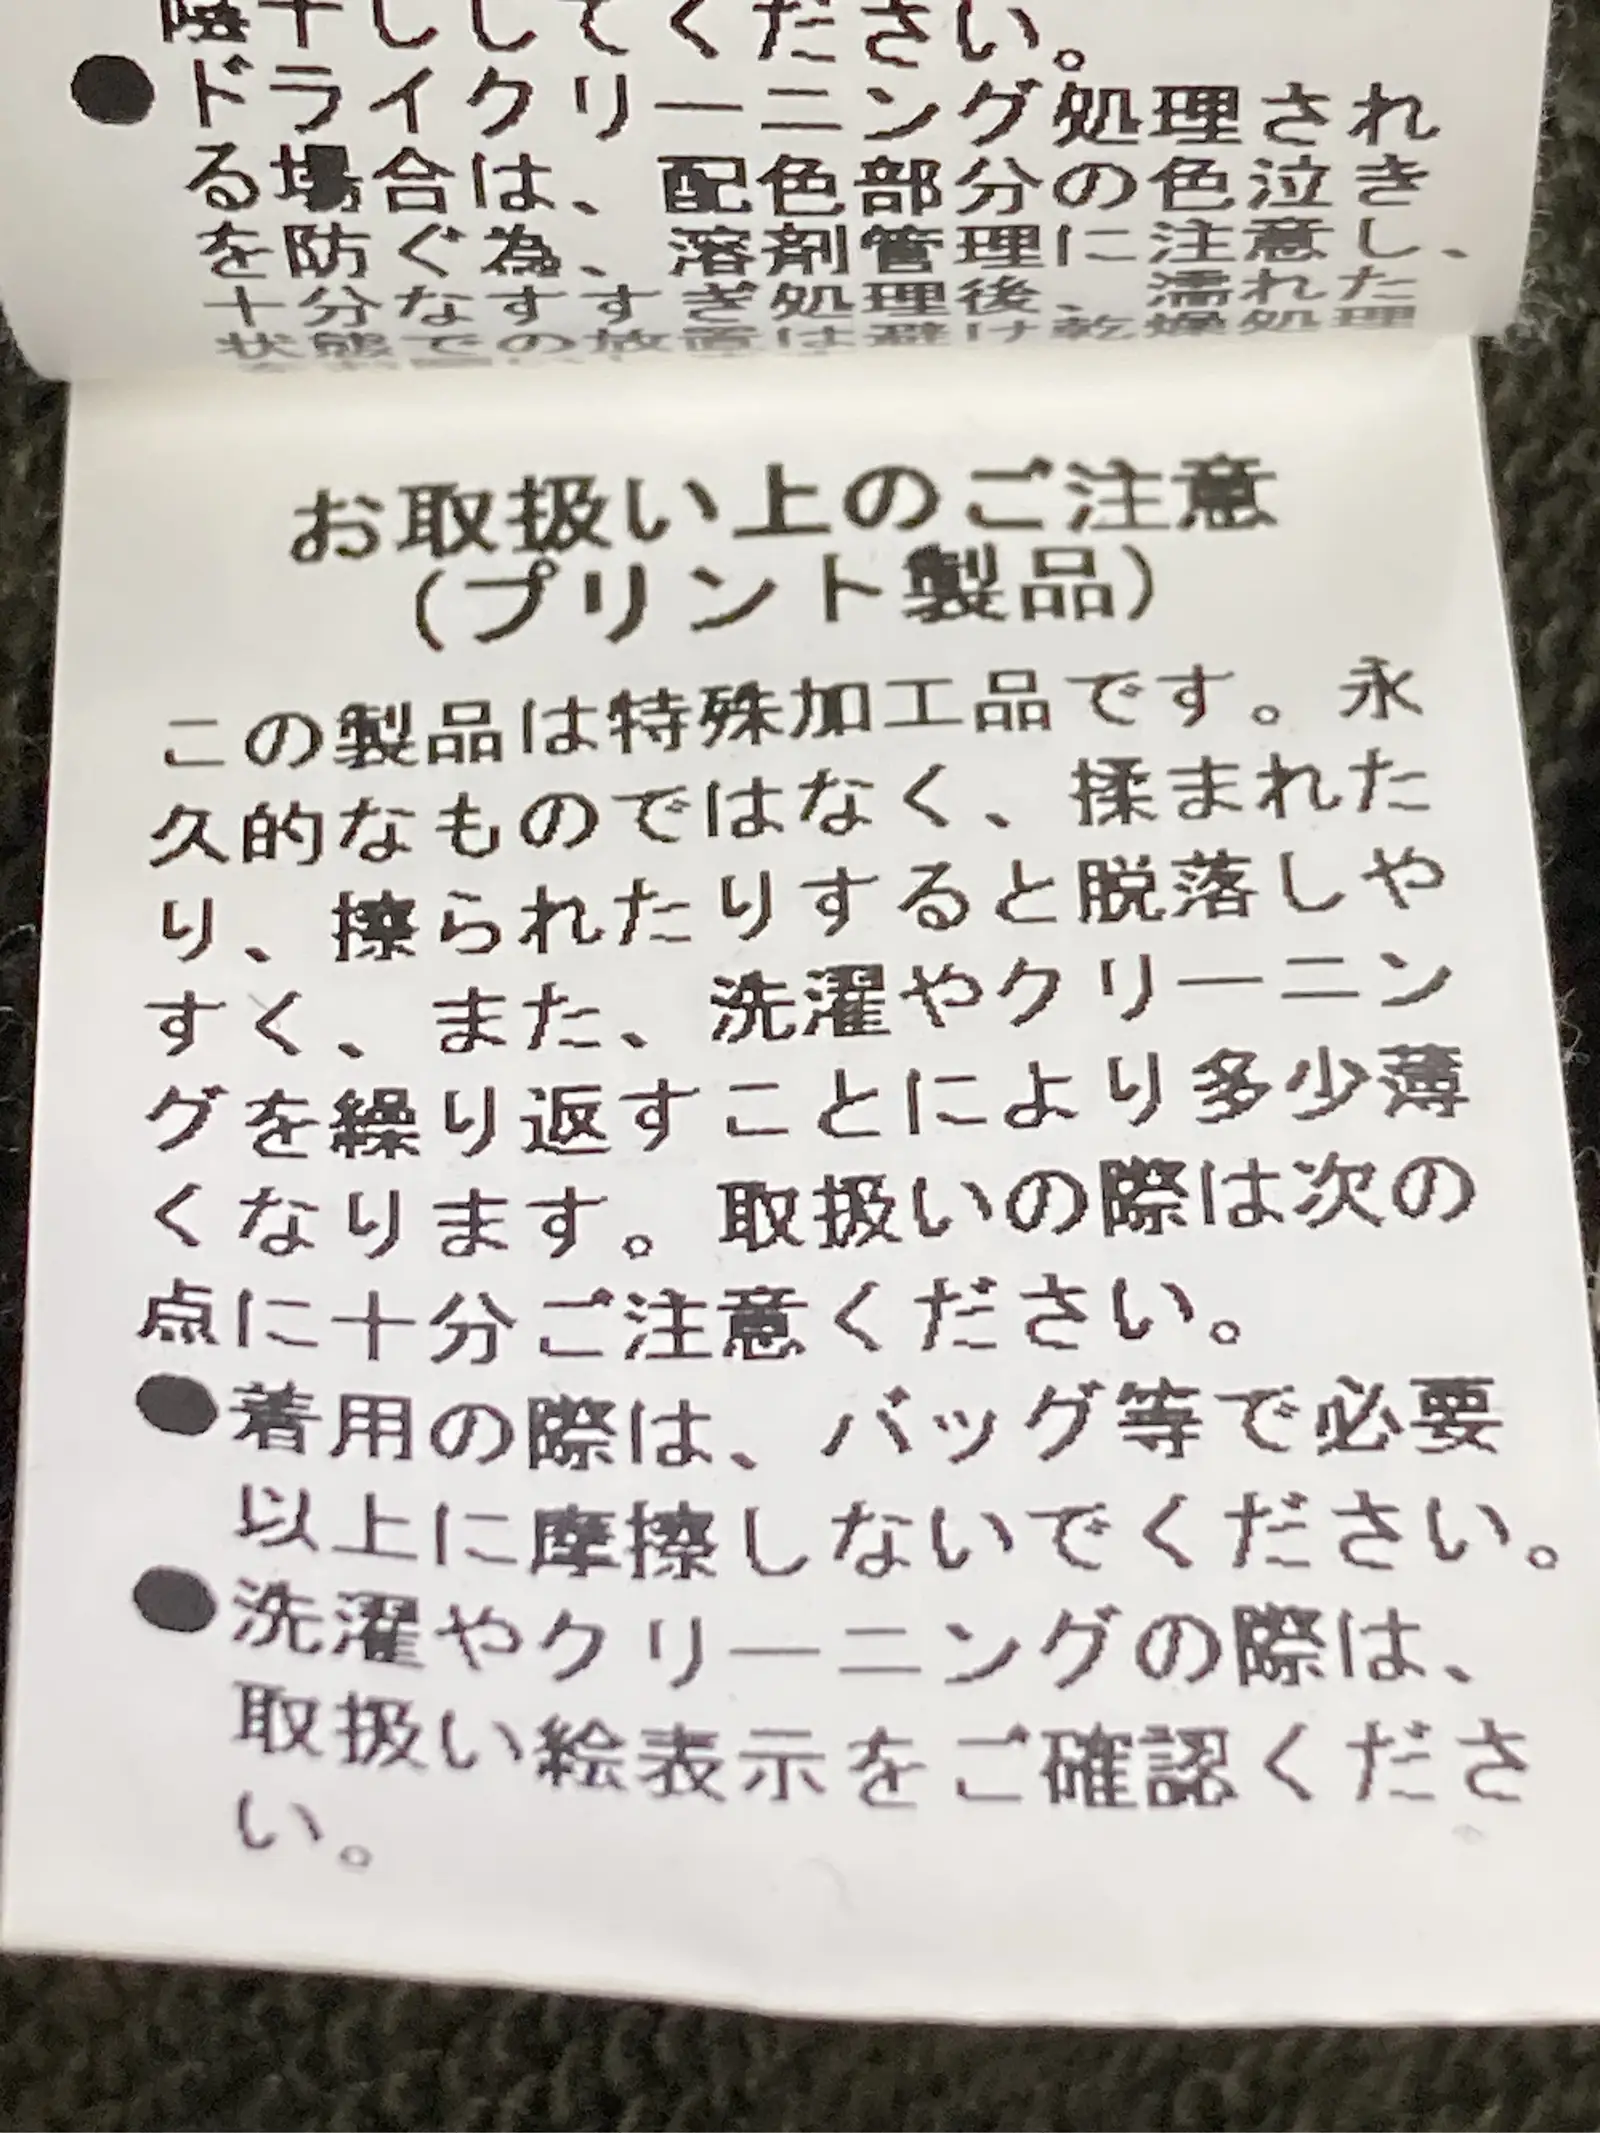 陰干ししてください。
●ドライクリーニング処理され
る場合は、配色部分の色泣き
を防ぐ為、溶剤管理に注意し、
十分なすすぎ処理後、濡れた
状態での放置は避け乾燥処理
お取扱い上のご注意
(プリント製品)
この製品は特殊加工品です。永
久的なものではなく、揉まれた
り、擦られたりすると脱落しや
すく、また、洗濯やクリーニン
グを繰り返すことにより多少薄
くなります。取扱いの際は次の
点に十分ご注意ください。
●着用の際は、バッグ等で必要
以上に摩擦しないでください。
●洗濯やクリーニングの際は、
取扱い絵表示をご確認くださ
い。